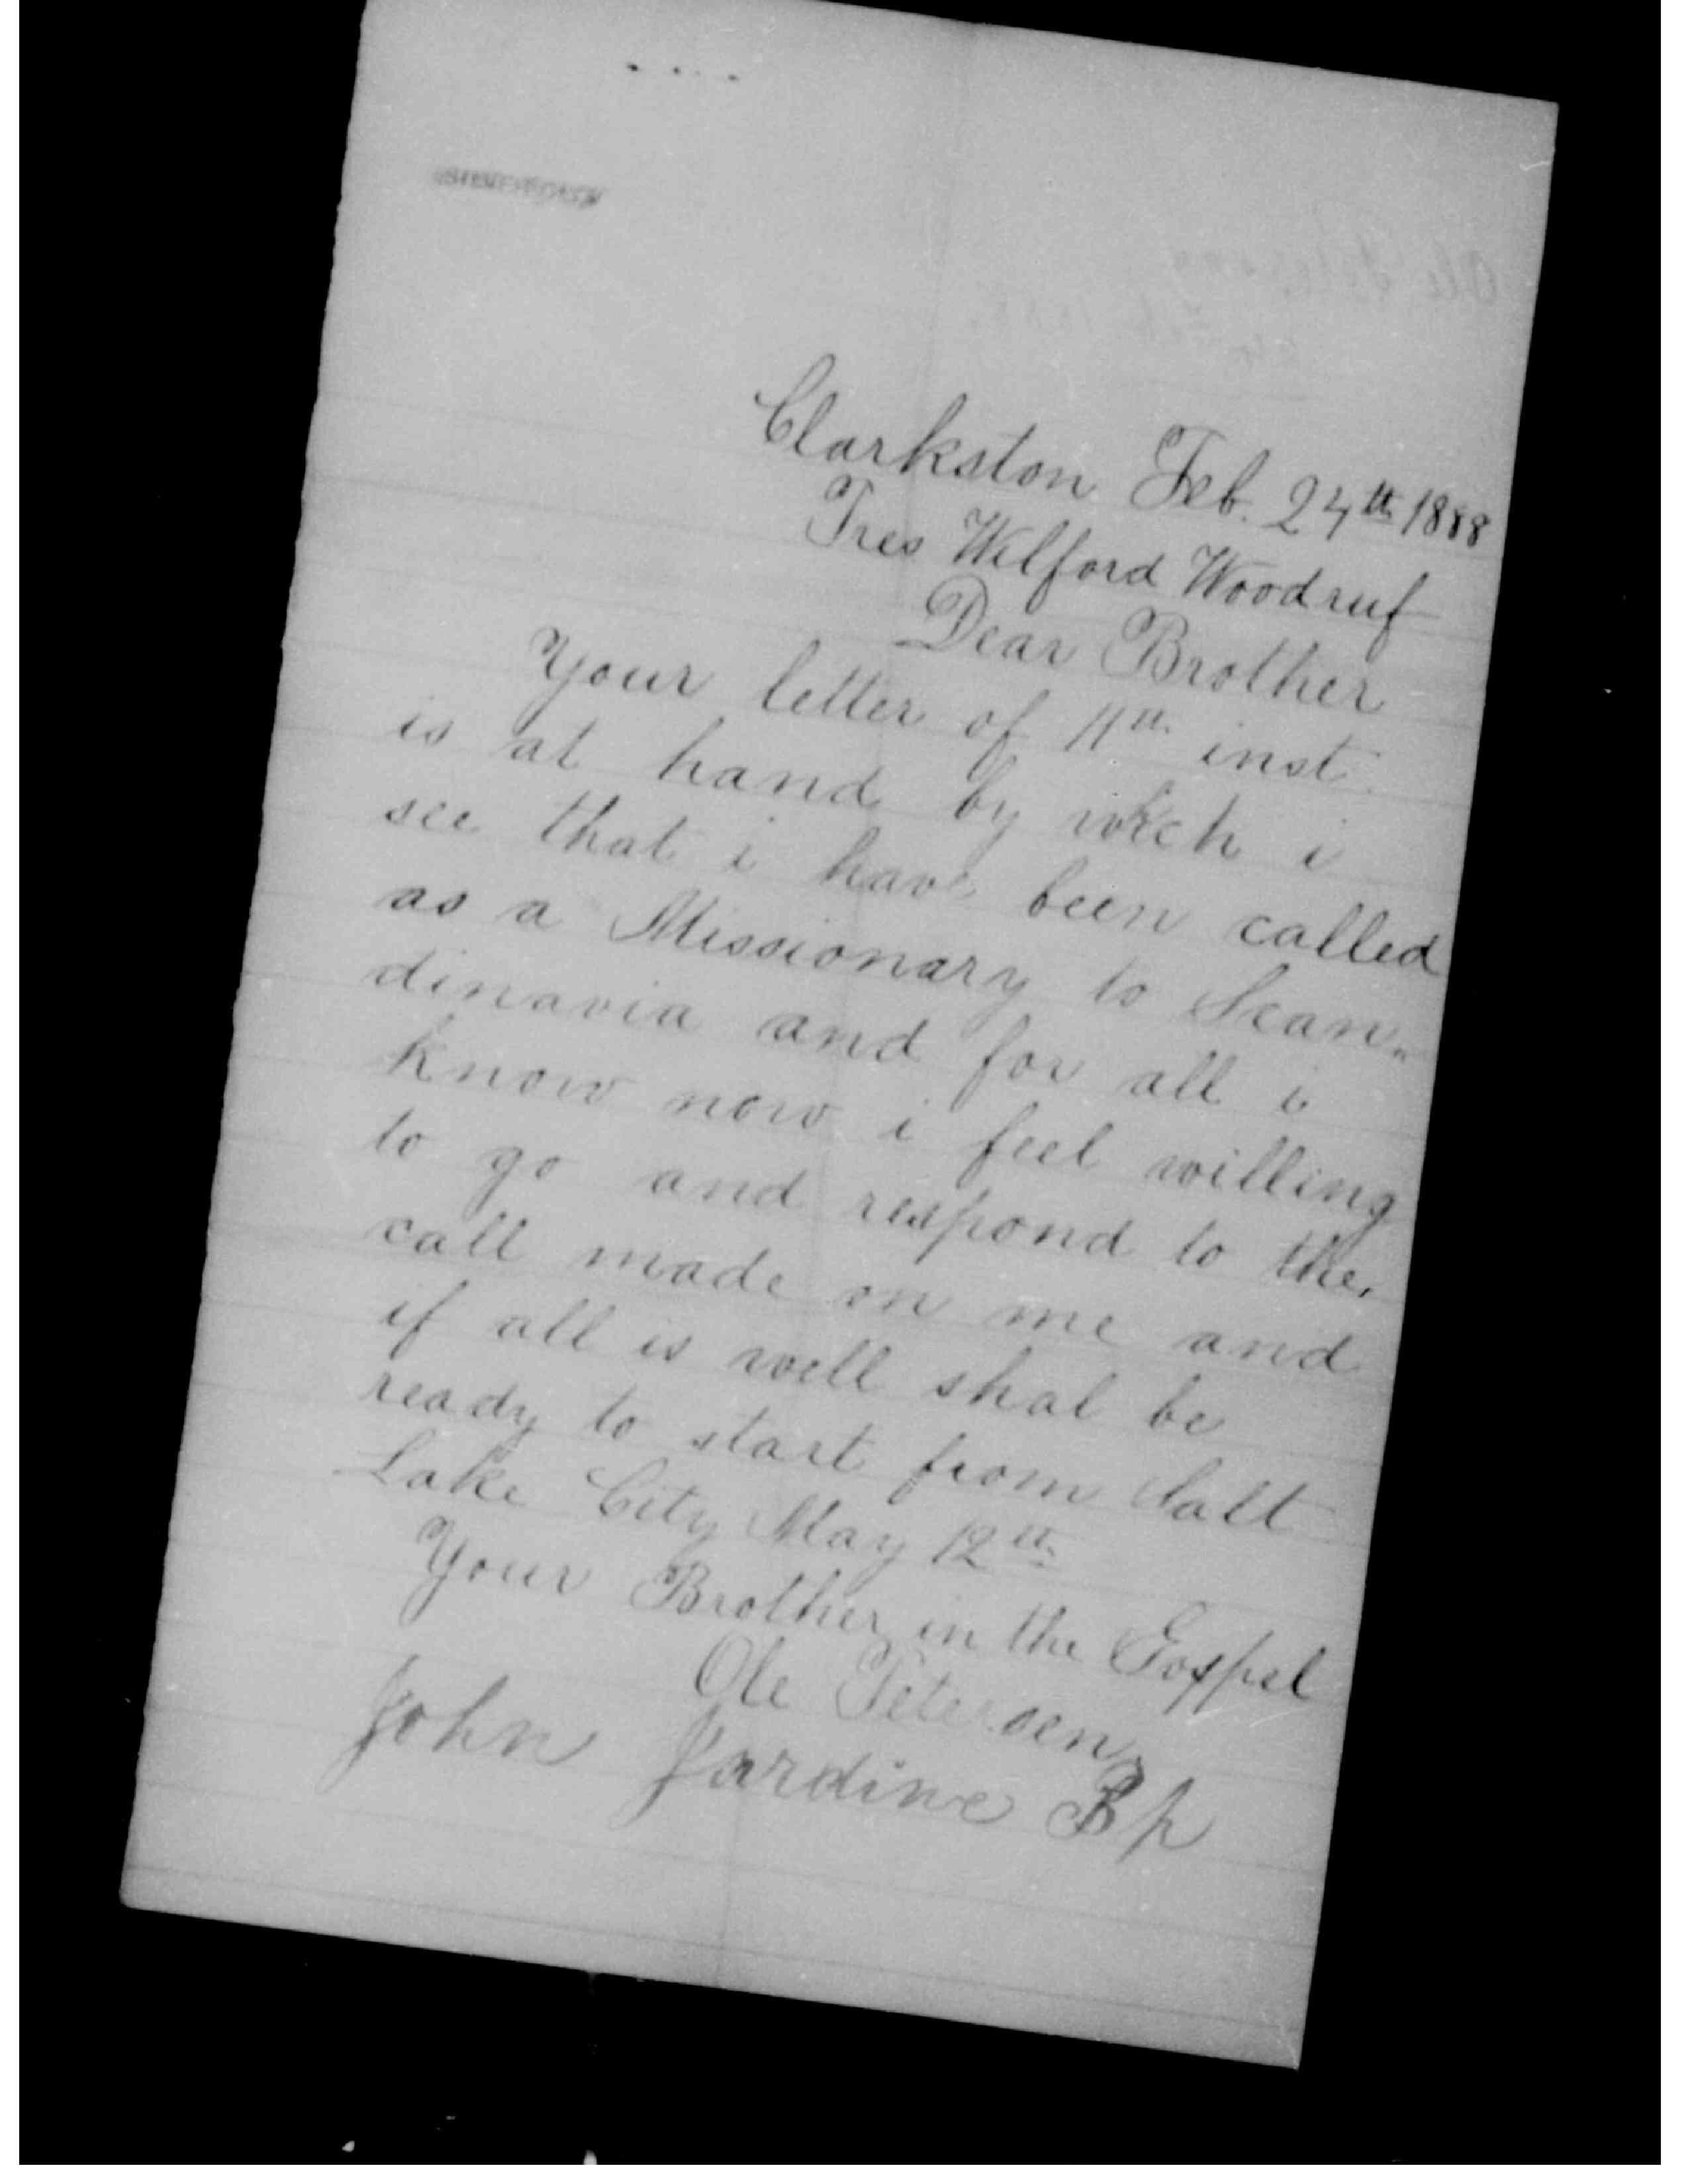 Clarkston Feb. 24th 1888
Pres Wilford Woodruf
Dear Brother
Your letter of 11th inst.
is at hand by wich i
see that i have been called
as a Missionary to Scan-
dinavia and for all i
know now i feel willing
to go and respond to the
call made on me and
if all is well shal be
ready to start from Salt
Lake City May 12th
Your Brother in the Gospel
Ole Petersen
John Jardine Bp